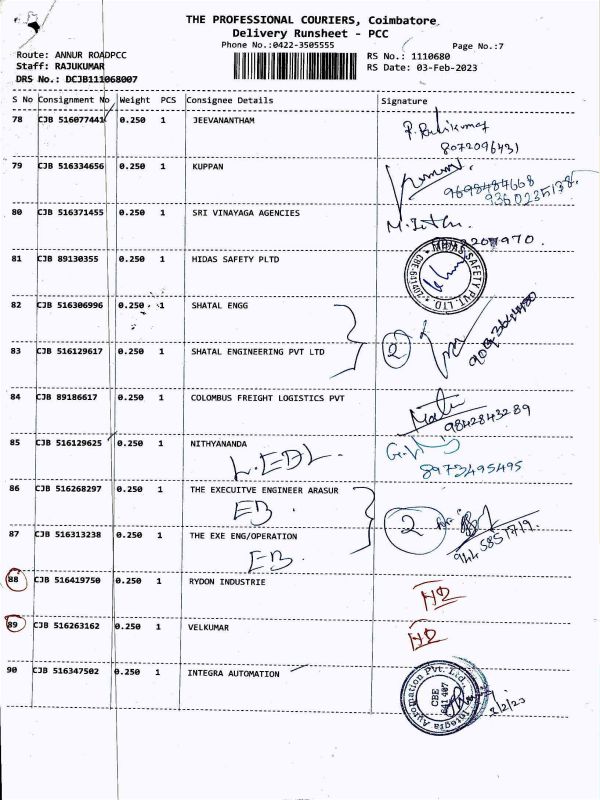 THE PROFESSIONAL COURIERS, Coimbatore
Delivery Runsheet - PCC
Phone No.:0422-3505555
Page No.:7
Route: ANNUR ROADPCC
Staff: RAJUKUMAR
DRS No.: DCJB111068007
RS No.: 1110680
RS Date: 03-Feb-2023
S No Consignment No Weight PCS Consignee Details Signature
78 CJB 516077441 0.250 1 JEEVANANTHAM
8072096431
79 CJB 516334656 0.250 1 KUPPAN
9698484668
9360235138
80 CJB 516371455 0.250 1 SRI VINAYAGA AGENCIES
81 CJB 89130355 0.250 1 HIDAS SAFETY PLTD
SAFETY PVT. LTD
82 CJB 516306996 0.250 1 SHATAL ENGG
2
83 CJB 516129617 0.250 1 SHATAL ENGINEERING PVT LTD
84 CJB 89186617 0.250 1 COLOMBUS FREIGHT LOGISTICS PVT
9842843289
85 CJB 516129625 0.250 1 NITHYANANDA
8973495495
86 CJB 516268297 0.250 1 THE EXECUITVE ENGINEER ARASUR
EB
2
87 CJB 516313238 0.250 1 THE EXE ENG/OPERATION
EB
944 5851719
88 CJB 516419750 0.250 1 RYDON INDUSTRIE
ND
89 CJB 516263162 0.250 1 VELKUMAR
ND
90 CJB 516347502 0.250 1 INTEGRA AUTOMATION
Integra Automation Pvt. Ltd.
CBE
641 407
3/2/23